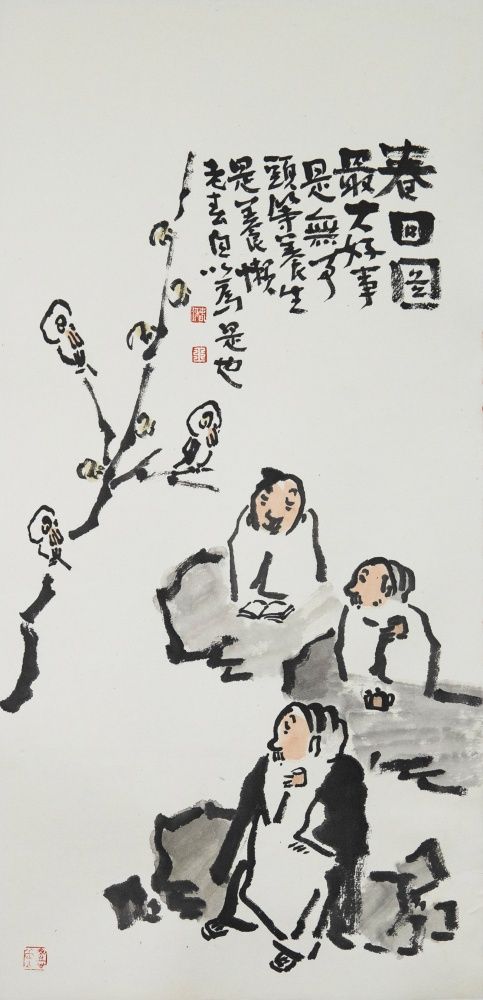 春日图
最大好事
是無事
頭等養生
是養懶
老自以為是也